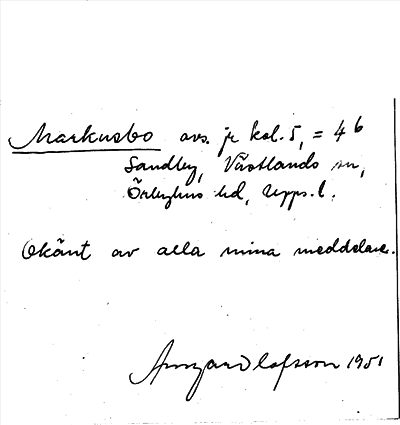 Markusbo avs. jr kol. 5, = 4 b
Sandby, Västlands sn,
Örbyhus hd, Upps. l.
Okänt av alla mina meddelare.
Olofsson 1951